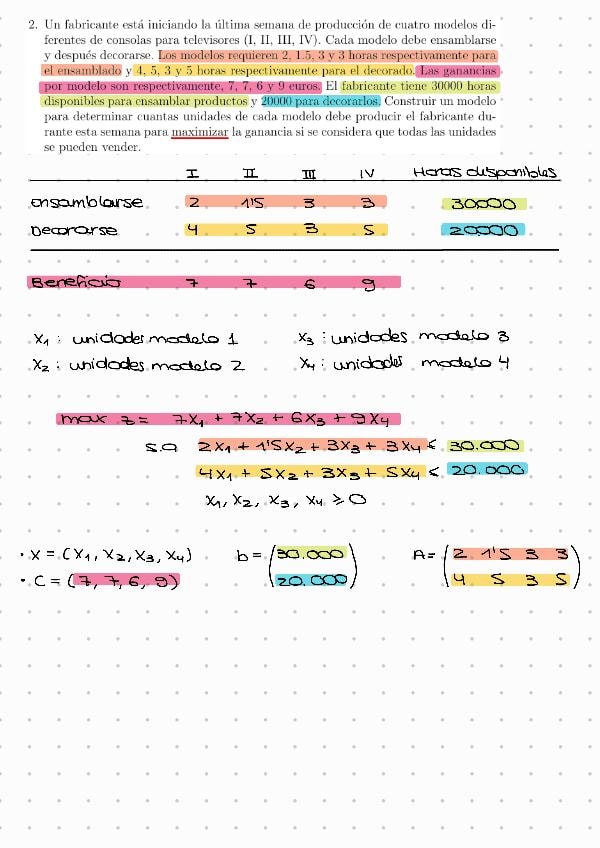 2. Un fabricante está iniciando la última semana de producción de cuatro modelos di-
ferentes de consolas para televisores (I, II, III, IV). Cada modelo debe ensamblarse
y después decorarse. Los modelos requieren 2, 1.5, 3 y 3 horas respectivamente para
el ensamblado y 4, 5, 3 y 5 horas respectivamente para el decorado. Las ganancias
por modelo son respectivamente, 7, 7, 6 y 9 euros. El fabricante tiene 30000 horas
disponibles para ensamblar productos y 20000 para decorarlos. Construir un modelo
para determinar cuantas unidades de cada modelo debe producir el fabricante du-
rante esta semana para maximizar la ganancia si se considera que todas las unidades
se pueden vender.
I II III IV Horas disponibles
ensamblarse 2 1'5 3 3 30000
Decorarse 4 5 3 5 20000
Beneficio 7 7 6 9
X₁ : unidades modelo 1 X₃ : unidades modelo 3
X₂ : unidades modelo 2 X₄ : unidades modelo 4
max z = 7X₁ + 7X₂ + 6X₃ + 9X₄
s.a 2X₁ + 1'5X₂ + 3X₃ + 3X₄ ≤ 30.000
4X₁ + 5X₂ + 3X₃ + 5X₄ ≤ 20.000
X₁, X₂, X₃, X₄ ≥ 0
· X = (X₁, X₂, X₃, X₄) b = (30.000 A = (2 1'5 3 3
· C = (7, 7, 6, 9) 20.000) 4 5 3 5)